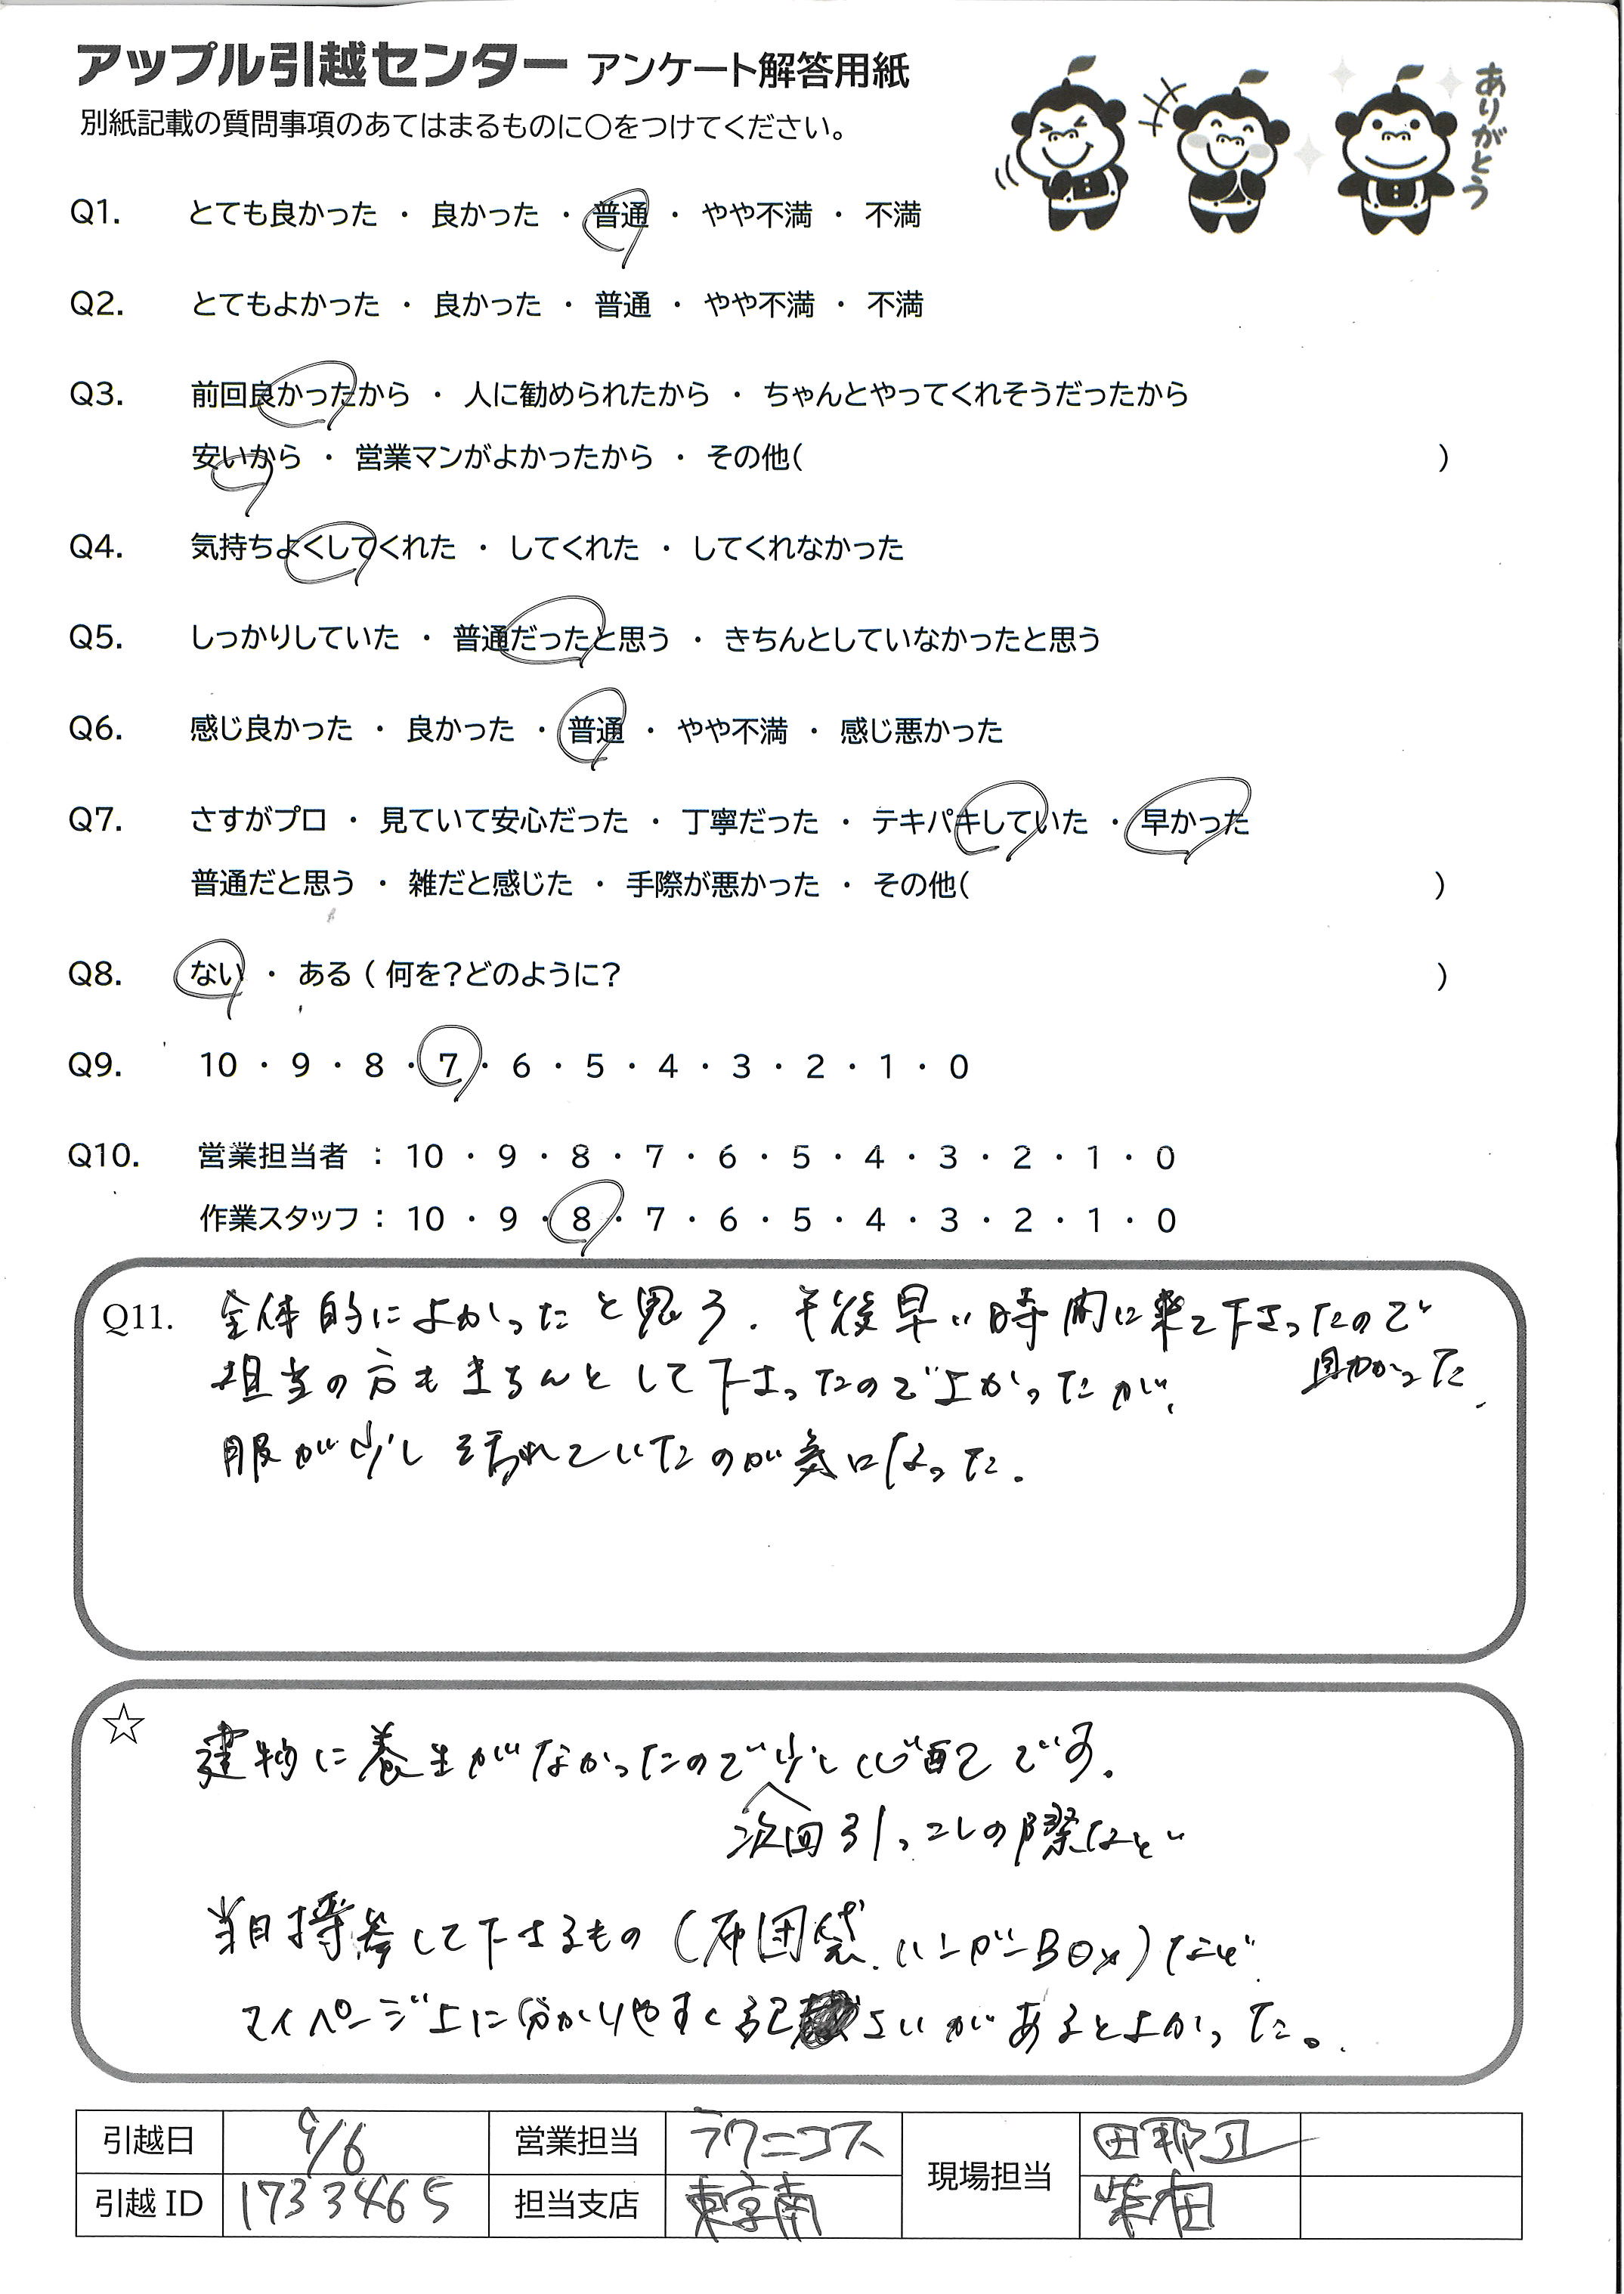 アップル引越センター アンケート解答用紙
別紙記載の質問事項のあてはまるものに○をつけてください。
ありがとう
Q1. とても良かった ・ 良かった ・ 普通 ・ やや不満 ・ 不満
Q2. とてもよかった ・ 良かった ・ 普通 ・ やや不満 ・ 不満
Q3. 前回良かったから ・ 人に勧められたから ・ ちゃんとやってくれそうだったから
安いから ・ 営業マンがよかったから ・ その他( )
Q4. 気持ちよくしてくれた ・ してくれた ・ してくれなかった
Q5. しっかりしていた ・ 普通だったと思う ・ きちんとしていなかったと思う
Q6. 感じ良かった ・ 良かった ・ 普通 ・ やや不満 ・ 感じ悪かった
Q7. さすがプロ ・ 見ていて安心だった ・ 丁寧だった ・ テキパキしていた ・ 早かった
普通だと思う ・ 雑だと感じた ・ 手際が悪かった ・ その他( )
Q8. ない ・ ある ( 何を?どのように? )
Q9. 10 ・ 9 ・ 8 ・ 7 ・ 6 ・ 5 ・ 4 ・ 3 ・ 2 ・ 1 ・ 0
Q10. 営業担当者 : 10 ・ 9 ・ 8 ・ 7 ・ 6 ・ 5 ・ 4 ・ 3 ・ 2 ・ 1 ・ 0
作業スタッフ : 10 ・ 9 ・ 8 ・ 7 ・ 6 ・ 5 ・ 4 ・ 3 ・ 2 ・ 1 ・ 0
Q11. 全体的によかったと思う. 午後早い時間に来て下さったので
助かった.
担当の方もきちんとして下さったのでよかったが、
服が少し汚れていたのが気になった.
☆ 建物に養生がなかったので少し心配です.
次回引っこしの際など
当日持参して下さるもの (布団袋、ハンガーBOX) など
マイページ上に分かりやすく記さいがあるとよかった。
引越日 9/6 営業担当 ラクニコス 現場担当 田那辺
引越 ID 1733465 担当支店 東京南 柴田